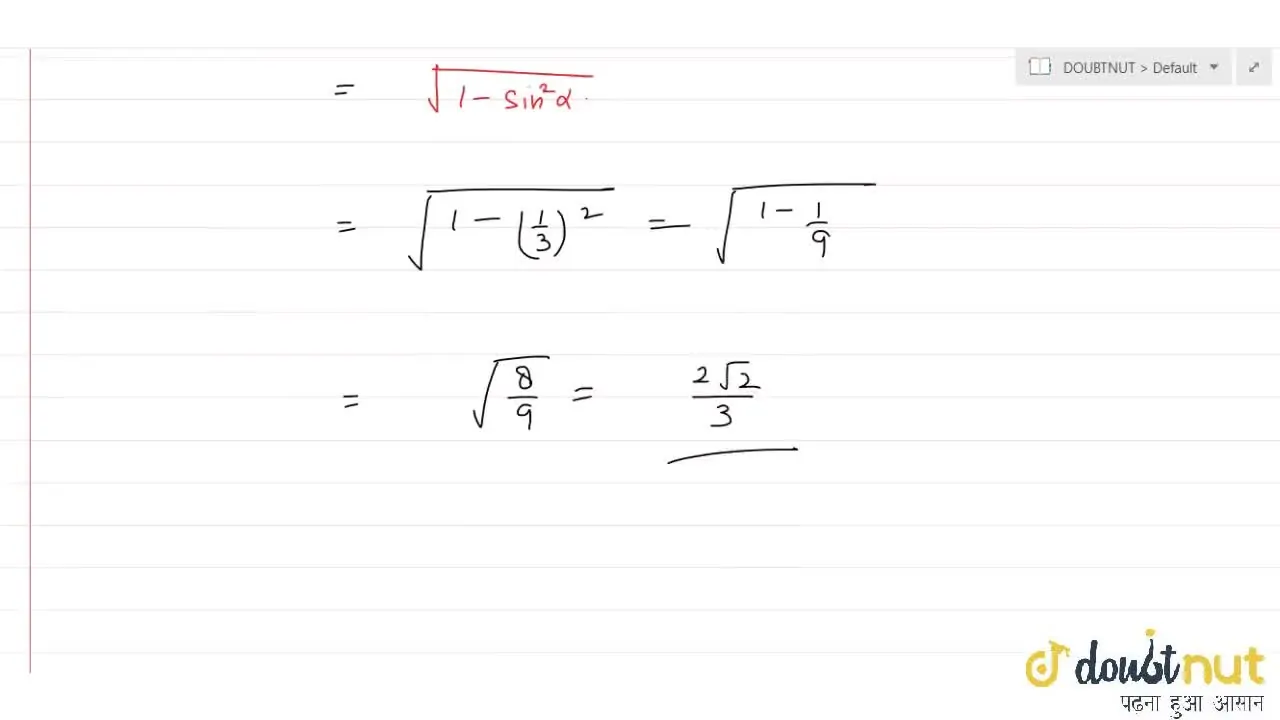 DOUBTNUT > Default
= √(1 - sin²α)
= √(1 - (1/3)²) = √(1 - 1/9)
= √(8/9) = 2√2/3
doubtnut
पढ़ना हुआ आसान